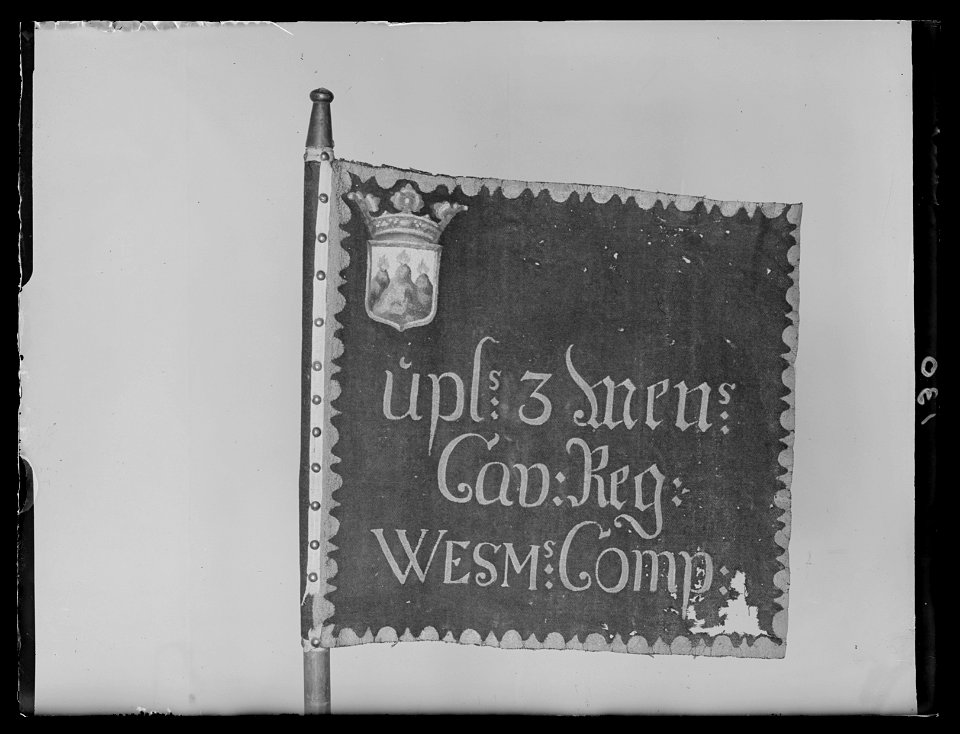 ŭplˢ: 3 Menˢ:
Cav: Reg:
WESMˢ: Comp:
130